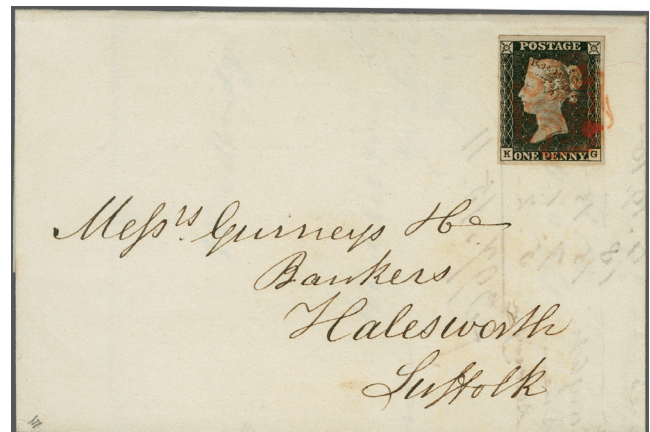 POSTAGE
K ONE PENNY G
Messrs Gurneys & Co
Bankers
Halesworth
Suffolk